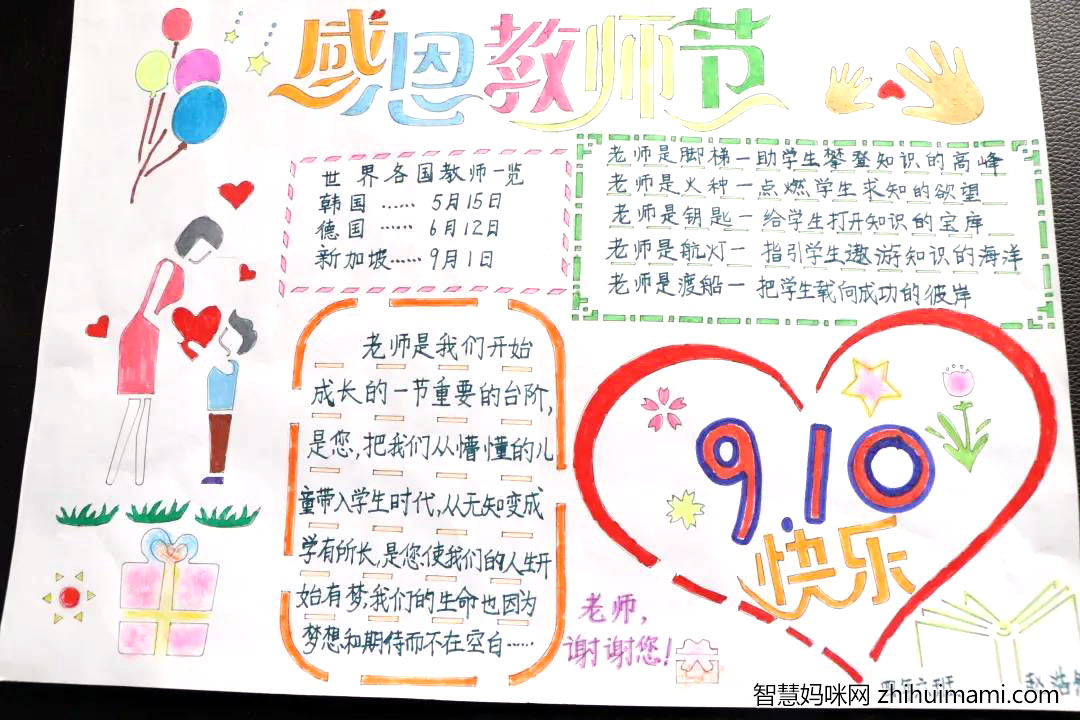 感恩教师节
世界各国教师一览
韩国……5月15日
德国……6月12日
新加坡……9月1日
老师是脚梯一助学生攀登知识的高峰
老师是火种一点燃学生求知的欲望
老师是钥匙一给学生打开知识的宝库
老师是航灯一指引学生遨游知识的海洋
老师是渡船一把学生载向成功的彼岸
老师是我们开始
成长的一节重要的台阶,
是您,把我们从懵懂的儿
童带入学生时代,从无知变成
学有所长,是您使我们的人生开
始有梦,我们的生命也因为
梦想和期待而不在空白……
9.10
快乐
老师,
谢谢您!
智慧妈咪网 zhihuimami.com